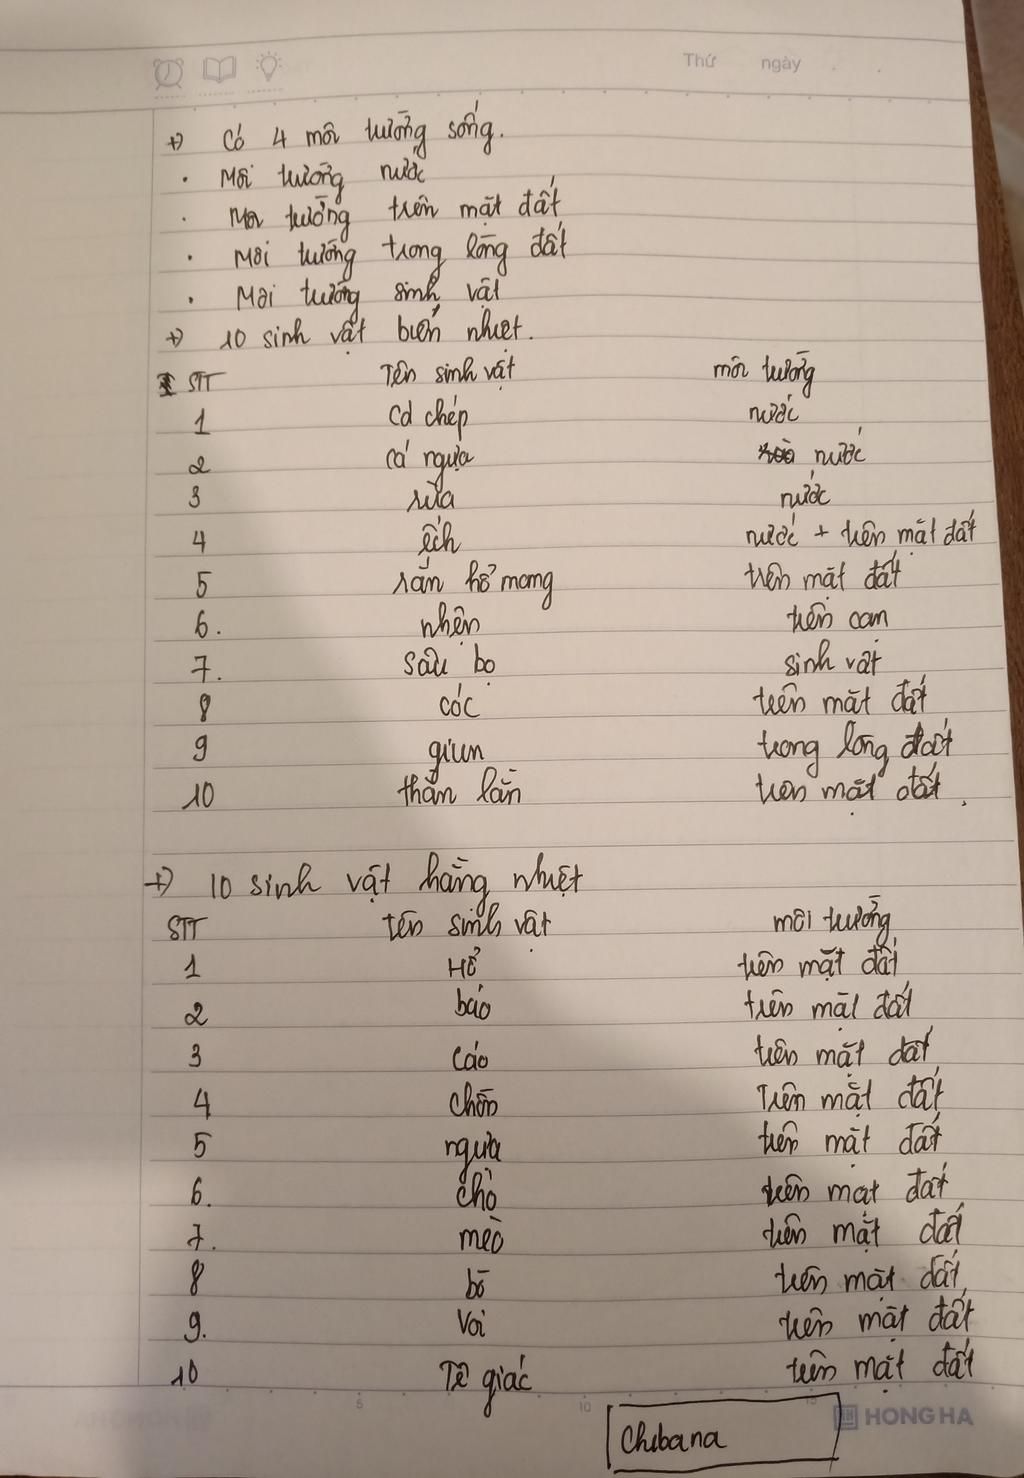 Thứ ngày
+) Có 4 môi trường sống.
· Môi trường nước
· Môi trường trên mặt đất
· Môi trường trong lòng đất
· Môi trường sinh vật
+) 10 sinh vật biến nhiệt.
STT Tên sinh vật môi trường
1 cá chép nước
2 cá ngựa nước
3 rùa nước
4 ếch nước + trên mặt đất
5 rắn hổ mang trên mặt đất
6. nhện trên cạn
7. sâu bọ sinh vật
8 cóc trên mặt đất
9 giun trong lòng đất
10 thằn lằn trên mặt đất.
+) 10 sinh vật hằng nhiệt
STT tên sinh vật môi trường
1 Hổ trên mặt đất
2 báo trên mặt đất
3 cáo trên mặt đất
4 chồn Trên mặt đất
5 ngựa trên mặt đất
6. chó trên mặt đất
7. mèo trên mặt đất
8 bò trên mặt đất
9. Voi trên mặt đất
10 Tê giác trên mặt đất
5 10 15 HONG HA
Chibana